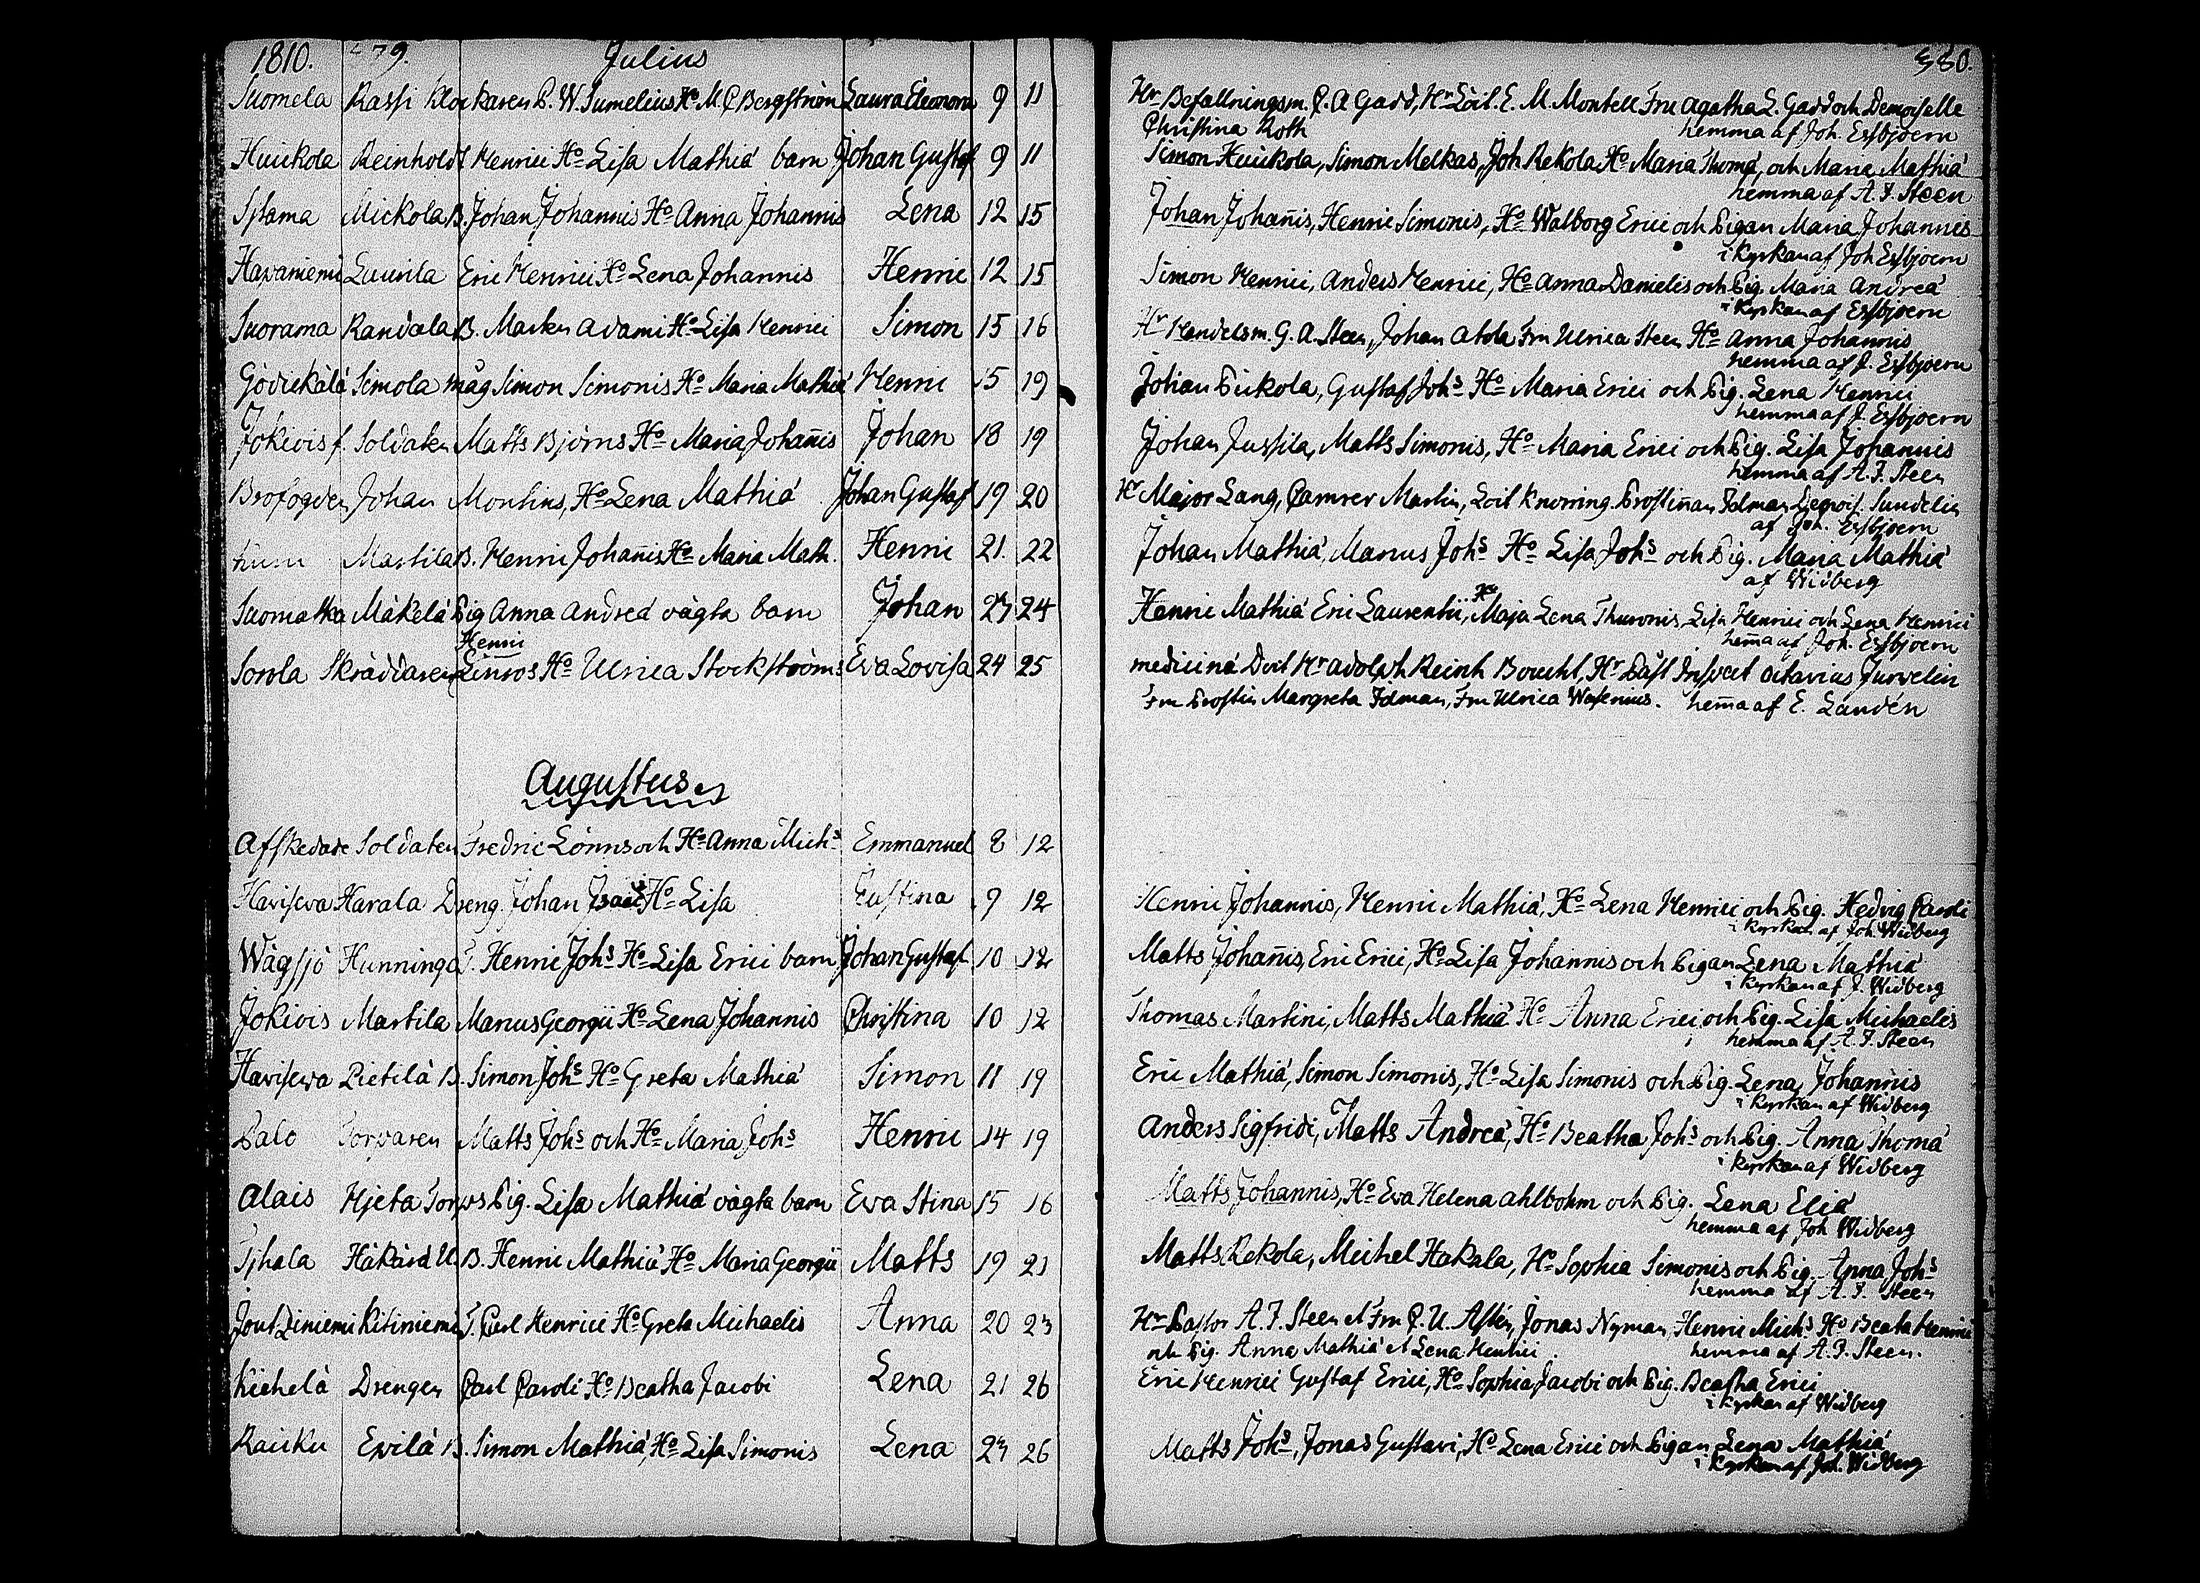 1810. 579. Julius
Suomela Kassi Klockaren P. W. Sumelius Ho M. C Bergström Laura Eleonora 9 11
Huickola Reinholdt Henrici Ho Lisa Mathiæ barn Johan Gustaf 9 11
Sjtama Mickola B. Johan Johannis Ho Anna Johannis Lena 12 15
Havaniemi Laurila Eric Henrici Ho Lena Johannis Henric 12 15
Suorama Randala B. Markus Adami Ho Lisa Henrici Simon 15 16
Simola måg Simon Simonis Ho Maria Mathiæ Henric 15 19
Jokiois f. Soldaten Matts Björns Ho Maria Johañis Johan 18 19
Brofogden Johan Montins, Ho Lena Mathiä Johan Gustaf 19 20
Martila B. Henric Johañis Ho Maria Math. Henric 21 22
Suomatka Mäkelä Pig Anna Andreä oägta barn Johan 23 24
Henric
Sorola Skräddaren Linros Ho Ulrica Stockströms Eva Lovisa 24 25
Augustus
Afskedade Soldaten Fredric Lönns och Ho Anna Michs Emmanuel 8 12
Havisewa Harala Dreng Johan Isacs Ho Lisa Justina 9 12
Wägsjö Hunninga T. Henric Johs Ho Lisa Erici barn Johan Gustaf 10 12
Jokiois Martila Marcus Georgii Ho Lena Johannis Christina 10 12
Havisewa Pietilä B. Simon Johs Ho Greta Mathiä Simon 11 19
Palo Torparen Matts Johs och Ho Maria Johs Henric 14 19
Alais Hjeta Torps Pig. Lisa Mathiä oägta barn Eva Stina 15 16
B. Henric Mathiä Ho Maria Georgii Matts 19 21
Kitiniemi T. Carl Henrici Ho Greta Michaelis Anna 20 23
Kiehelä Drengen Carl Caroli Ho Beatha Jacobi Lena 21 26
Raicku Erilä B. Simon Mathiä, Ho Lisa Simonis Lena 23 26
580.
Hr Befallningsm. C. A Gadd, Hr Löit. E. M. Montell Fru Agatha L. Gadd och Demoiselle
Christina Roth hemma af Joh. Essbjoern
Simon Huickola, Simon Melkas, Joh Rekola Ho Maria Thomä, och Maria Mathiä
hemma af A. F. Steen
Johan Johañis, Henric Simonis, Ho Walborg Erici och Pigan Maria Johannis
i kyrkan af Joh Essbjoern
Simon Henrici, Anders Henrici, Ho Anna Danielis och Pig. Maria Andreä
i kyrkan af Essbjoern
Hr Handelsm. G. A. Steen, Johan Atola Fru Ulrica Steen Ho Anna Johannis
hemma af J. Essbjoern
Johan Pickola, Gustaf Johs Ho Maria Erici och Pig. Lena Henrici
hemma af J. Essbjoern
Johan Jussila, Matts Simonis, Ho Maria Erici och Pig. Lisa Johannis
hemma af A. F. Steen
Hr Major Lang, Camrer Martin, Löit Knorring. Prostiñan Idman Demois. Sundelin
af Joh. Essbjoern
Johan Mathiä, Marcus Johs Ho Lisa Johs och Pig. Maria Mathiä
af Widberg
Henric Mathiä Eric Laurentii, Ho Maja Lena Thuronis, Lisa Henrici och Lena Henrici
hem̃a af Joh. Essbjoern
medicinä Doct Hr Adolph Reinh Boucht, Hr Past Insvect Octavius Jurvelin
Fru Prostin Margreta Idman, Fru Ulrica Wasenius. hem̃a af E. Landén
Henric Johannis, Henric Mathiä, Ho Lena Henrici och Pig. Hedvig Caroli
i kyrkan af Joh. Widberg
Matts Johañis, Eric Erici, Ho Lisa Johannis och Pigan Lena Mathiä
i kyrkan af J. Widberg
Thomas Martini, Matts Mathiä Ho Anna Erici, och Pig. Lisa Michaelis
hemma af A. F. Steen
Eric Mathiä, Simon Simonis, Ho Lisa Simonis och Pig. Lena Johannis
i kyrkan af Widberg
Anders Sigfridi, Matts Andreä, Ho Beatha Johs och Pig. Anna Thomä
i kyrkan af Widberg
Matts Johannis, Ho Eva Helena Ahlbohm och Pig. Lena Eliä
hemma af Joh Widberg
Matts Rekola, Michel Hakala, Ho Sophia Simonis och Pig. Anna Johs
hemma af A. F. Steen
Hr Pastor A. F. Steen et Fru C. U. Astén, Jonas Nyman, Henric Michs Ho Beata Henrici
och Pig. Anna Mathiä et Lena Henrici. hemma af A. F. Steen.
Eric Henrici Gustaf Erici, Ho Sophia Jacobi och Pig. Beatha Erici
i kyrkan af Widberg
Matts Johs, Jonas Gustavi, Ho Lena Erici och Pigan Lena Mathiä
i kyrkan af Joh. Widberg